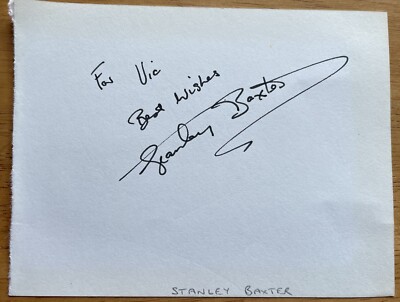 For Vic
Best Wishes
Stanley Baxter
STANLEY BAXTER